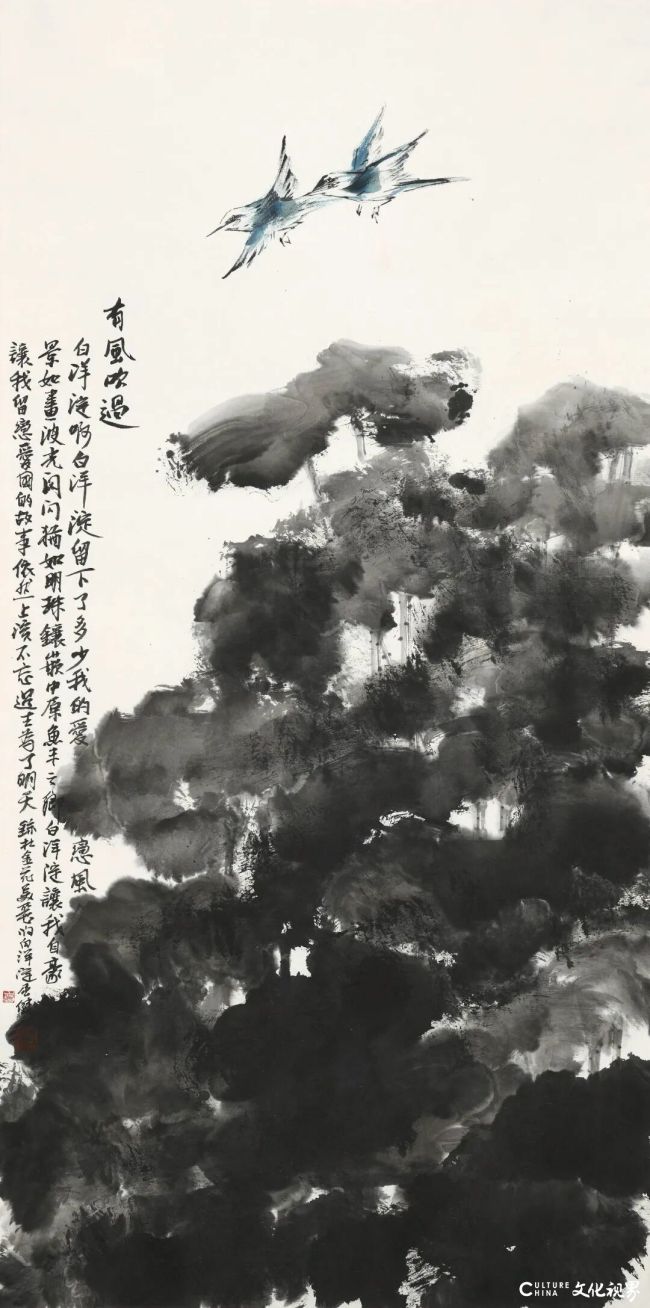 有風吹過
白洋淀啊白洋淀留下了多少我的愛 風
景如畫波光閃閃猶如明珠鑲嵌中原魚米之鄉白洋淀讓我自豪
讓我留戀愛國的故事依然上演不忘過去為了明天
白洋淀
CULTURE CHINA 文化視界